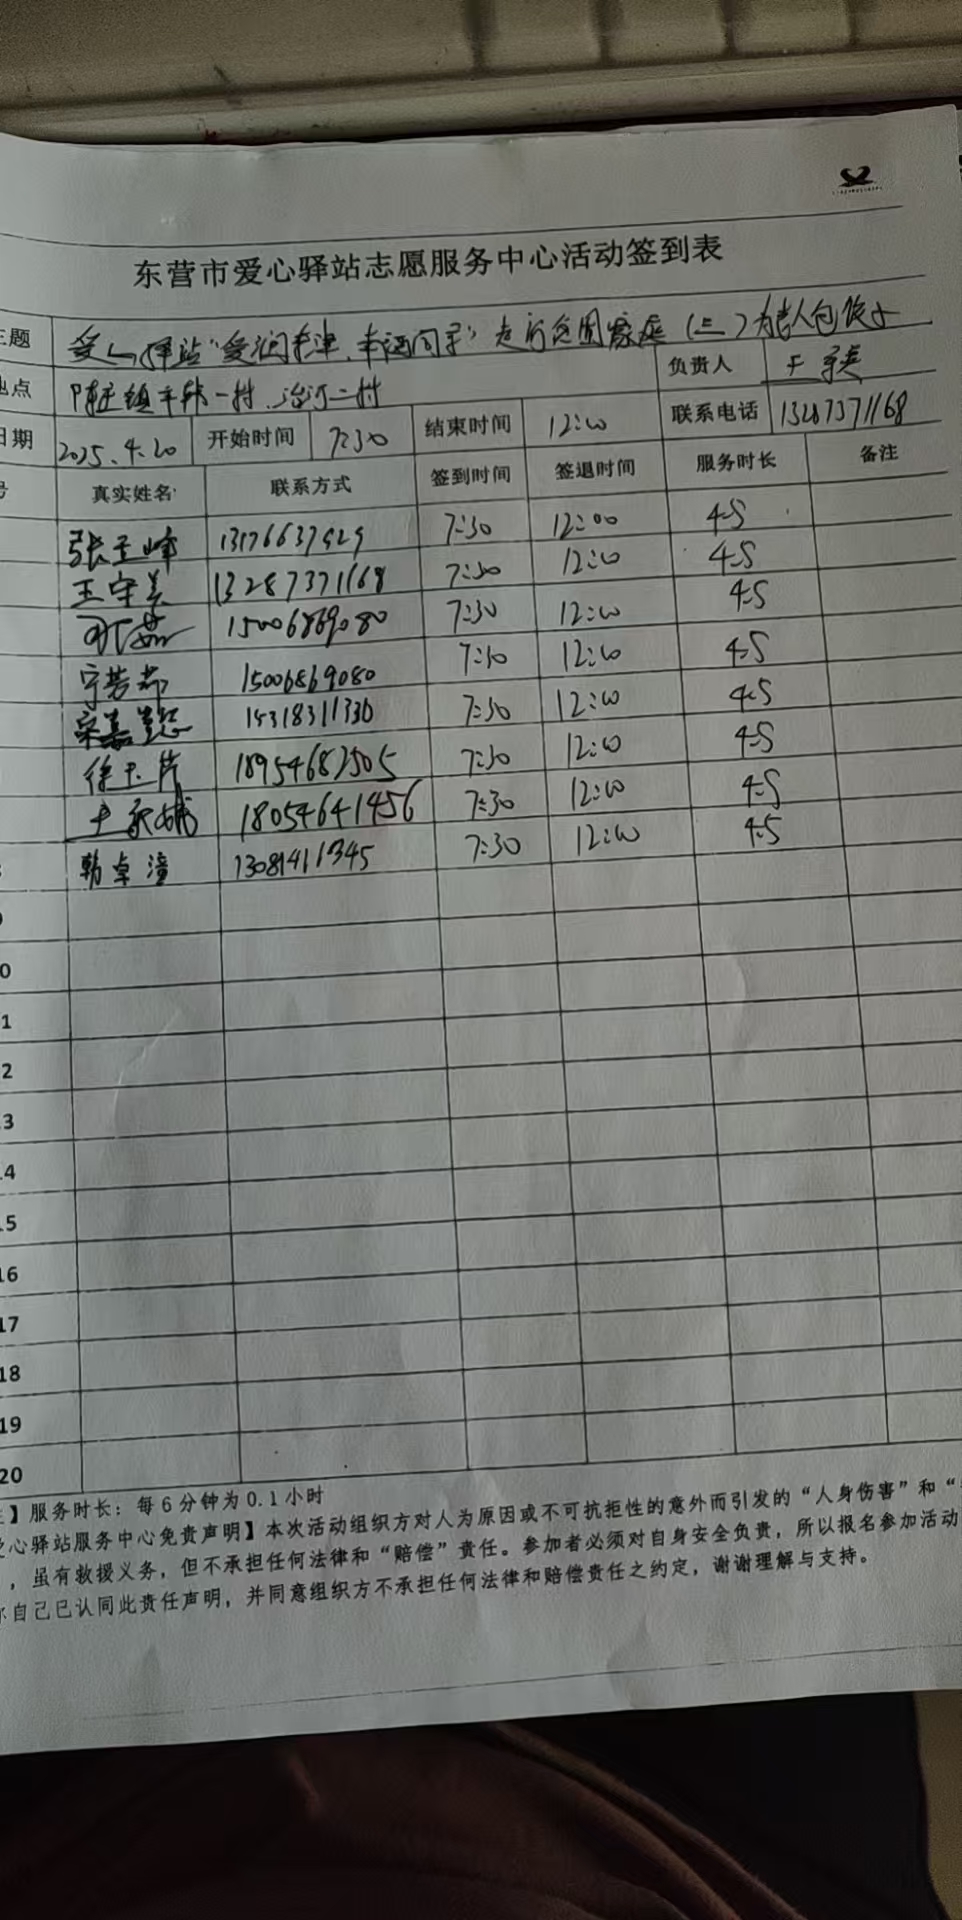 东营市爱心驿站志愿服务中心活动签到表
主题 爱心驿站"爱润利津、幸福同享"走访贫困家庭(三)为老人包饺子
地点 陈庄镇韩一村、治河二村 负责人 王守美
日期 2025.4.20 开始时间 7:30 结束时间 12:00 联系电话 13287371168
号 真实姓名 联系方式 签到时间 签退时间 服务时长 备注
张玉峰 13176637929 7:30 12:00 4.5
王守美 13287371168 7:30 12:00 4.5
15006869080 7:30 12:00 4.5
宁芳 15006869080 7:30 12:00 4.5
宋嘉懿 15318311330 7:30 12:00 4.5
徐玉芹 18954682505 7:30 12:00 4.5
18054641456 7:30 12:00 4.5
韩卓潼 13081411345 7:30 12:00 4.5
0
1
2
3
14
15
16
17
18
19
20
】服务时长：每6分钟为0.1小时
爱心驿站服务中心免责声明】本次活动组织方对人为原因或不可抗拒性的意外而引发的“人身伤害”和“
，虽有救援义务，但不承担任何法律和“赔偿”责任。参加者必须对自身安全负责，所以报名参加活动
你自己已认同此责任声明，并同意组织方不承担任何法律和赔偿责任之约定，谢谢理解与支持。